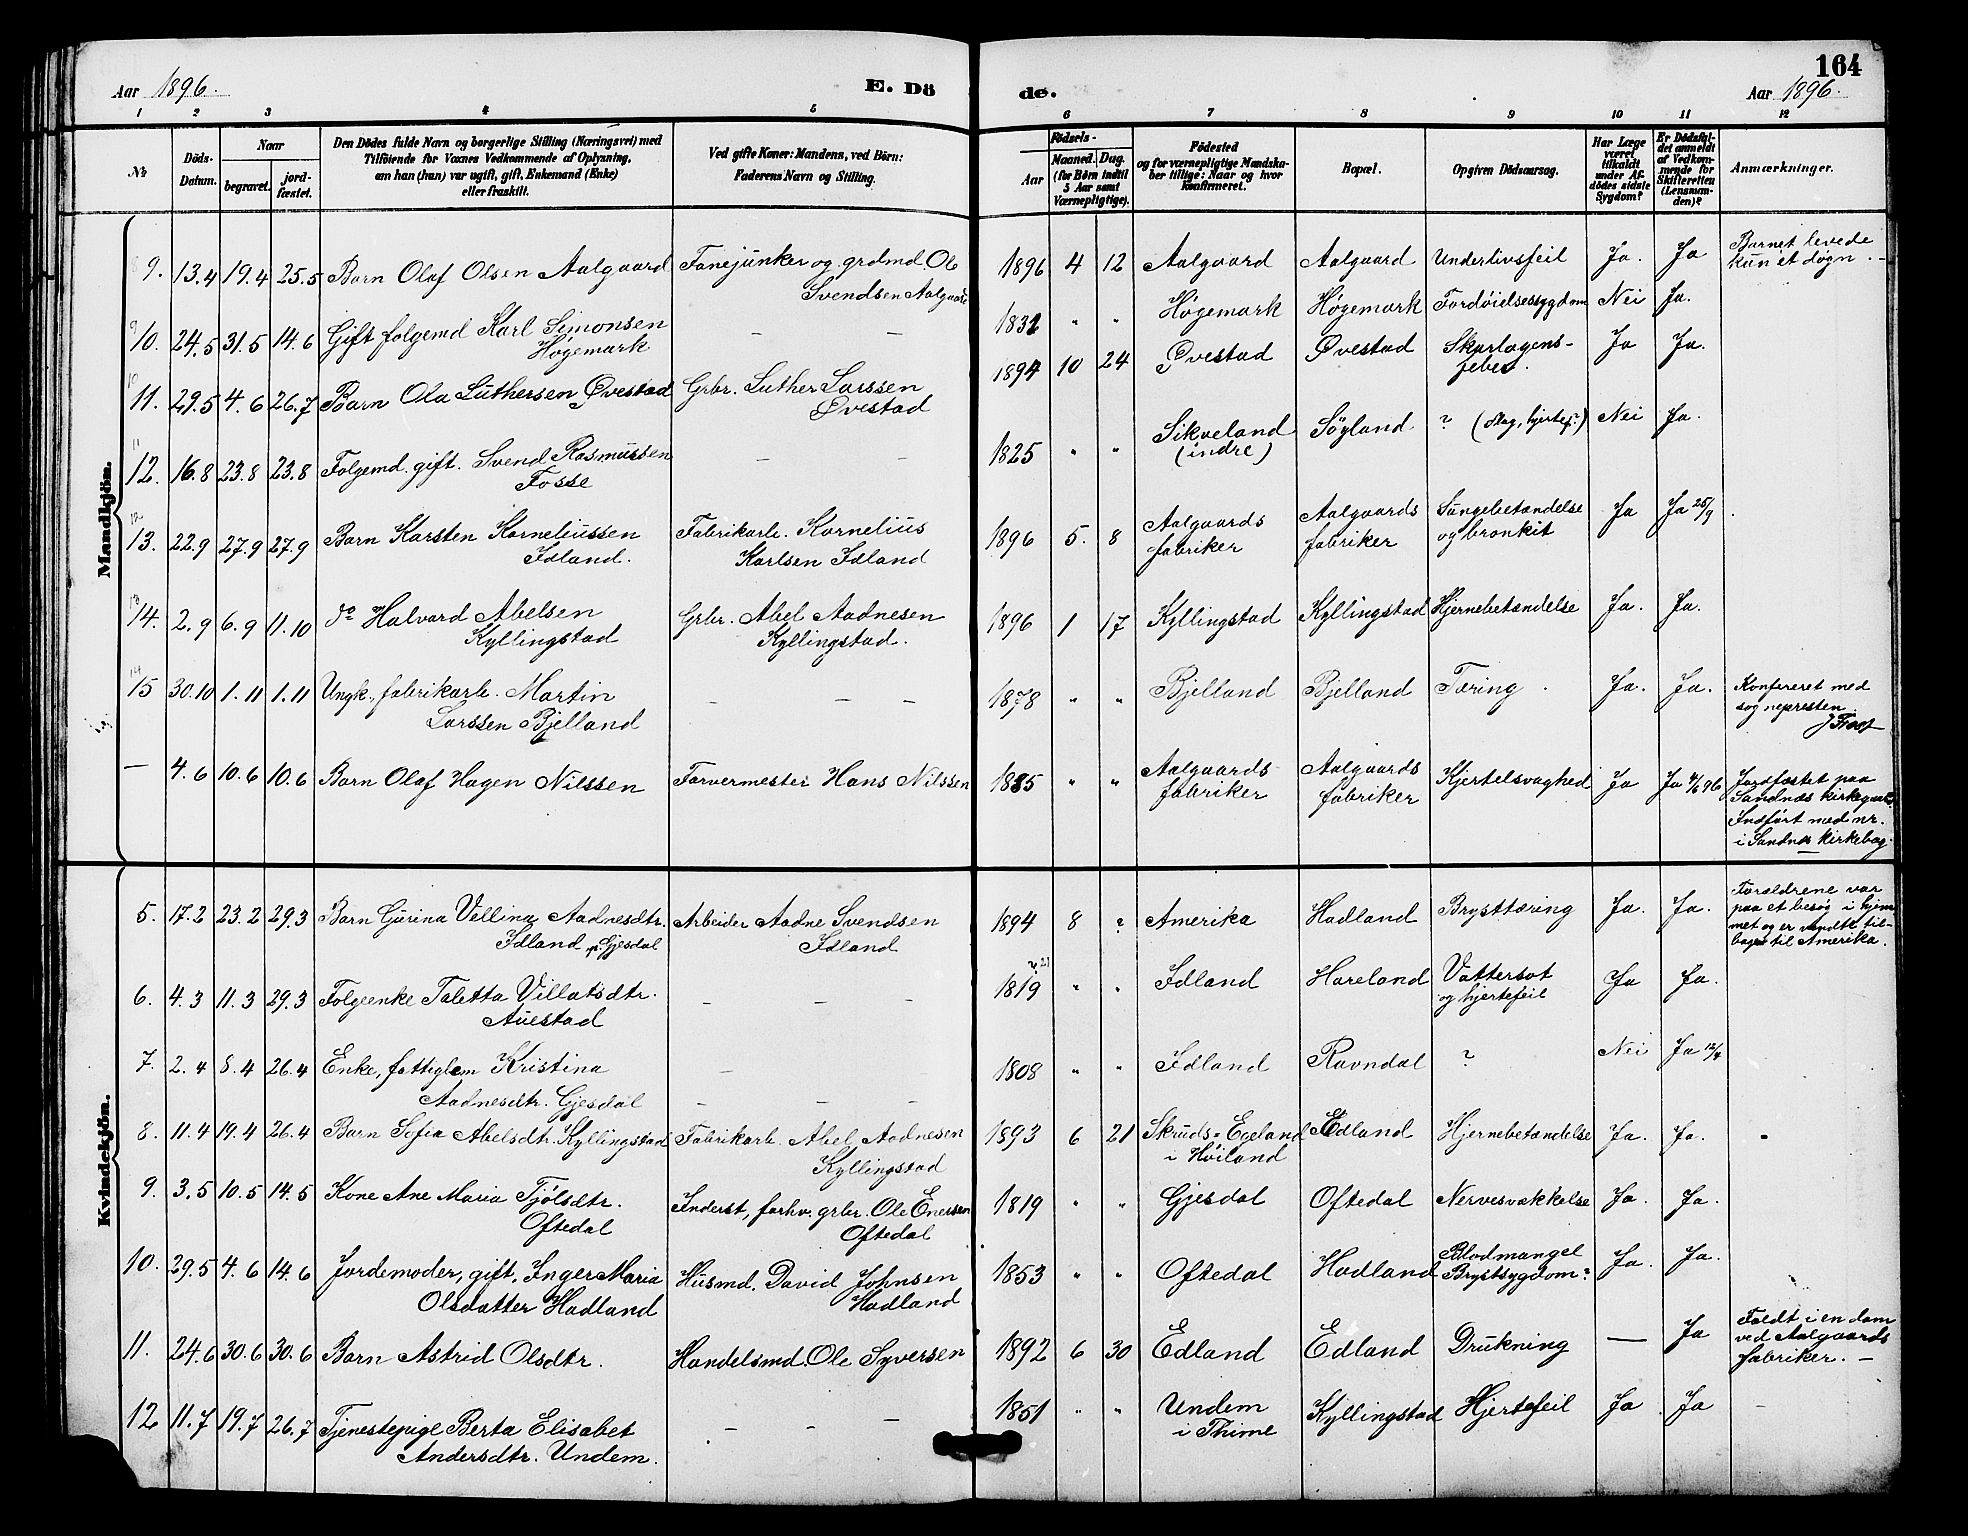 Aar 1896.
E. Dö
de.
164
Aar 1896.
1 2 3 4 5 6 7 8 9 10 11 12
No
Döds-Datum.
Naar
begravet.
jordfæstet.
Den Dödes fulde Navn og borgerlige Stilling (Næringsvei) med
Tilföiende for Voxnes Vedkommende af Oplysning,
om han (hun) var ugift, gift, Enkemand (Enke)
eller fraskilt.
Ved gifte Koner: Mandens, ved Börn:
Faderens Navn og Stilling.
Födsels-
Aar
Maaned. Dag.
(for Börn indtil
5 Aar samt
Værnepligtige).
Födested
og for værnepligtige Mandskaber tillige: Naar og hvor
konfirmeret.
Bopæl.
Opgiven Dödsaarsag.
Har Læge
været
tilkaldt
under Afdödes sidste
Sygdom?
Er Dödsfaldet anmeldt
af Vedkommende for
Skifteretten
(Lensmanden)?
Anmærkninger.
Mandkjön.
9. 13.4 19.4 25.5 Barn Olaf Olsen Aalgaard Fanejunker og grdmd Ole
Svendsen Aalgaard
1896 4 12 Aalgaard Aalgaard Underlivsfeil Ja. Ja Barnet levede
kun et døgn. –
10. 24.5 31.5 14.6 Gift folgemd Karl Simonsen
Høgemark
– –
1832 " " Høgemark Høgemark Fordøielsessygdom Nei Ja.
11. 29.5 4.6 26.7 Barn Ola Luthersen Øvestad Grbr. Luther Larssen
Øvestad
1894 10 24 Øvestad Øvestad Skarlagens-
feber. Ja Ja.
12. 16.8 23.8 23.8 Folgemd. gift. Svend Rasmussen
Fosse
– –
1825 " " Sikveland
(indre) Söyland ? (slag, hjertef?) Nei Ja.
13. 22.9 27.9 27.9 Barn Karsten Korneliussen
Idland.
Fabrikarb. Kornelius
Karlsen Idland
1896 5. 8 Aalgaards
fabriker Aalgaards
fabriker Lungebetændelse
og bronkit Ja Ja 25/9
14. 2.9 6.9 11.10 do Halvard Abelsen
Kyllingstad
Grbr. Abel Aadnesen
Kyllingstad.
1896 1 17 Kyllingstad Kyllingstad Hjernebetændelse Ja. Ja.
15 30.10 1.11 1.11 Ungk., fabrikarb. Martin
Larssen Bjelland
– – –
1878 " " Bjelland Bjelland Tæring. Ja. Ja. Konfereret med
sognepresten.
– 4.6 10.6 10.6 Barn Olaf Hagen Nilssen Farvermester Hans Nilssen
1885 " " Aalgaards
fabriker Aalgaards
fabriker Kjertelsvaghed Ja Ja 4/6 96 Jordfæstet paa
Sandnæs kirkegaard.
Indført med nr.
i Sandnæs kirkebog
Kvindekjön.
5. 17.2 23.2 29.3 Barn Gurina Vellina Aadnesdtr.
Idland Gjesdal
Arbeider Aadne Svendsen
Idland
1894 8 ? Amerika Hadland Brysttæring Ja. Ja. Forældrene var
paa et besøg i hjem
met og er vendte til-
bage til Amerika.
6. 4.3 11.3 29.3 Folgeenke Taletta Villatsdtr.
Auestad
– – –
1819 " " Idland Hareland Vattersot
og hjertefeil Ja Ja.
7. 2.4 8.4 26.4 Enke, fattiglem Kristina
Aadnesdtr. Gjesdal
– – –
1808 " " Idland Ravndal ? Nei Ja 12/4
8. 11.4 19.4 26.4 Barn Sofia Abelsdtr. Kyllingstad Fabrikarb. Abel Aadnesen
Kyllingstad
1893 6 21 Skruds-Egeland
i Høiland Edland Hjernebetændelse Ja. Ja.
9. 3.5 10.5 14.5 Kone Ane Maria Tjölsdtr.
Oftedal
Inderst, forhv. grbr. Ole Enersen
Oftedal
1819 " " Gjesdal Oftedal Nervesvækkelse Ja. Ja.
10. 29.5 4.6 14.6 Jordemoder, gift, Inger Maria
Olsdatter Hadland
Husmd. David Johnsen
Hadland
1853 " " Oftedal Hadland Blodmangel
Brystsygdom? Ja. Ja.
11. 24.6 30.6 30.6 Barn Astrid Olsdtr. Handelsmd. Ole Syversen
1892 6 30 Edland Edland Drukning – Ja Faldt i en dam
ved Aalgaards
fabriker. –
12 11.7 19.7 26.7 Tjenestepige Berta Elisabet
Andersdtr. Undem.
– – –
1851 " " Undem
i Thime Kyllingstad Hjertefeil Ja Ja –